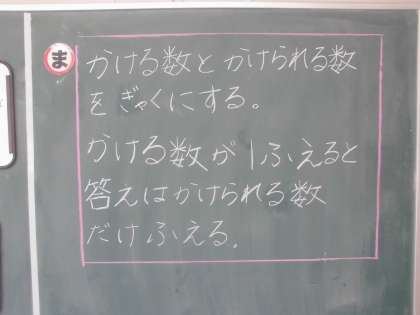 ま
かける数とかけられる数
をぎゃくにする。
かける数が1ふえると
答えはかけられる数
だけふえる。